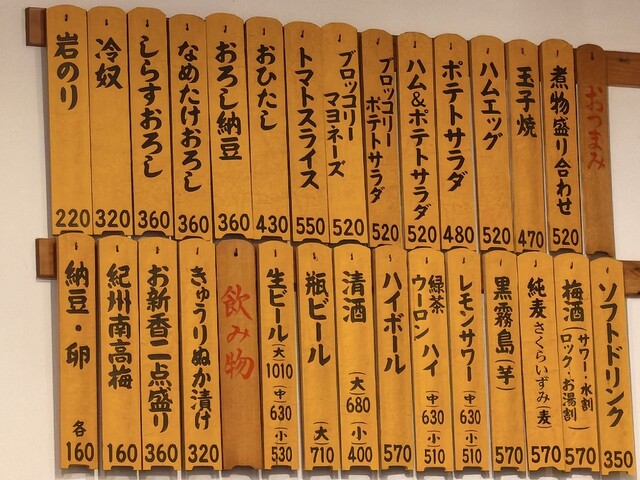 おつまみ
煮物盛り合わせ 520
玉子焼 470
ハムエッグ 520
ポテトサラダ 480
ハム&ポテトサラダ 520
ブロッコリー
ポテトサラダ 520
ブロッコリー
マヨネーズ 520
トマトスライス 550
おひたし 430
おろし納豆 360
なめたけおろし 360
しらすおろし 360
冷奴 320
岩のり 220
ソフトドリンク 350
梅酒(サワー・水割
ロック・お湯割) 570
純麦 さくらいずみ(麦) 570
黒霧島(芋) 570
レモンサワー (中) 630 (小) 510
緑茶
ウーロン ハイ (中) 630 (小) 510
ハイボール 570
清酒 (大) 680 (小) 400
瓶ビール (大) 710
生ビール (大) 1010 (中) 630 (小) 530
飲み物
きゅうりぬか漬け 320
お新香二点盛り 360
紀州南高梅 160
納豆・卵 各160